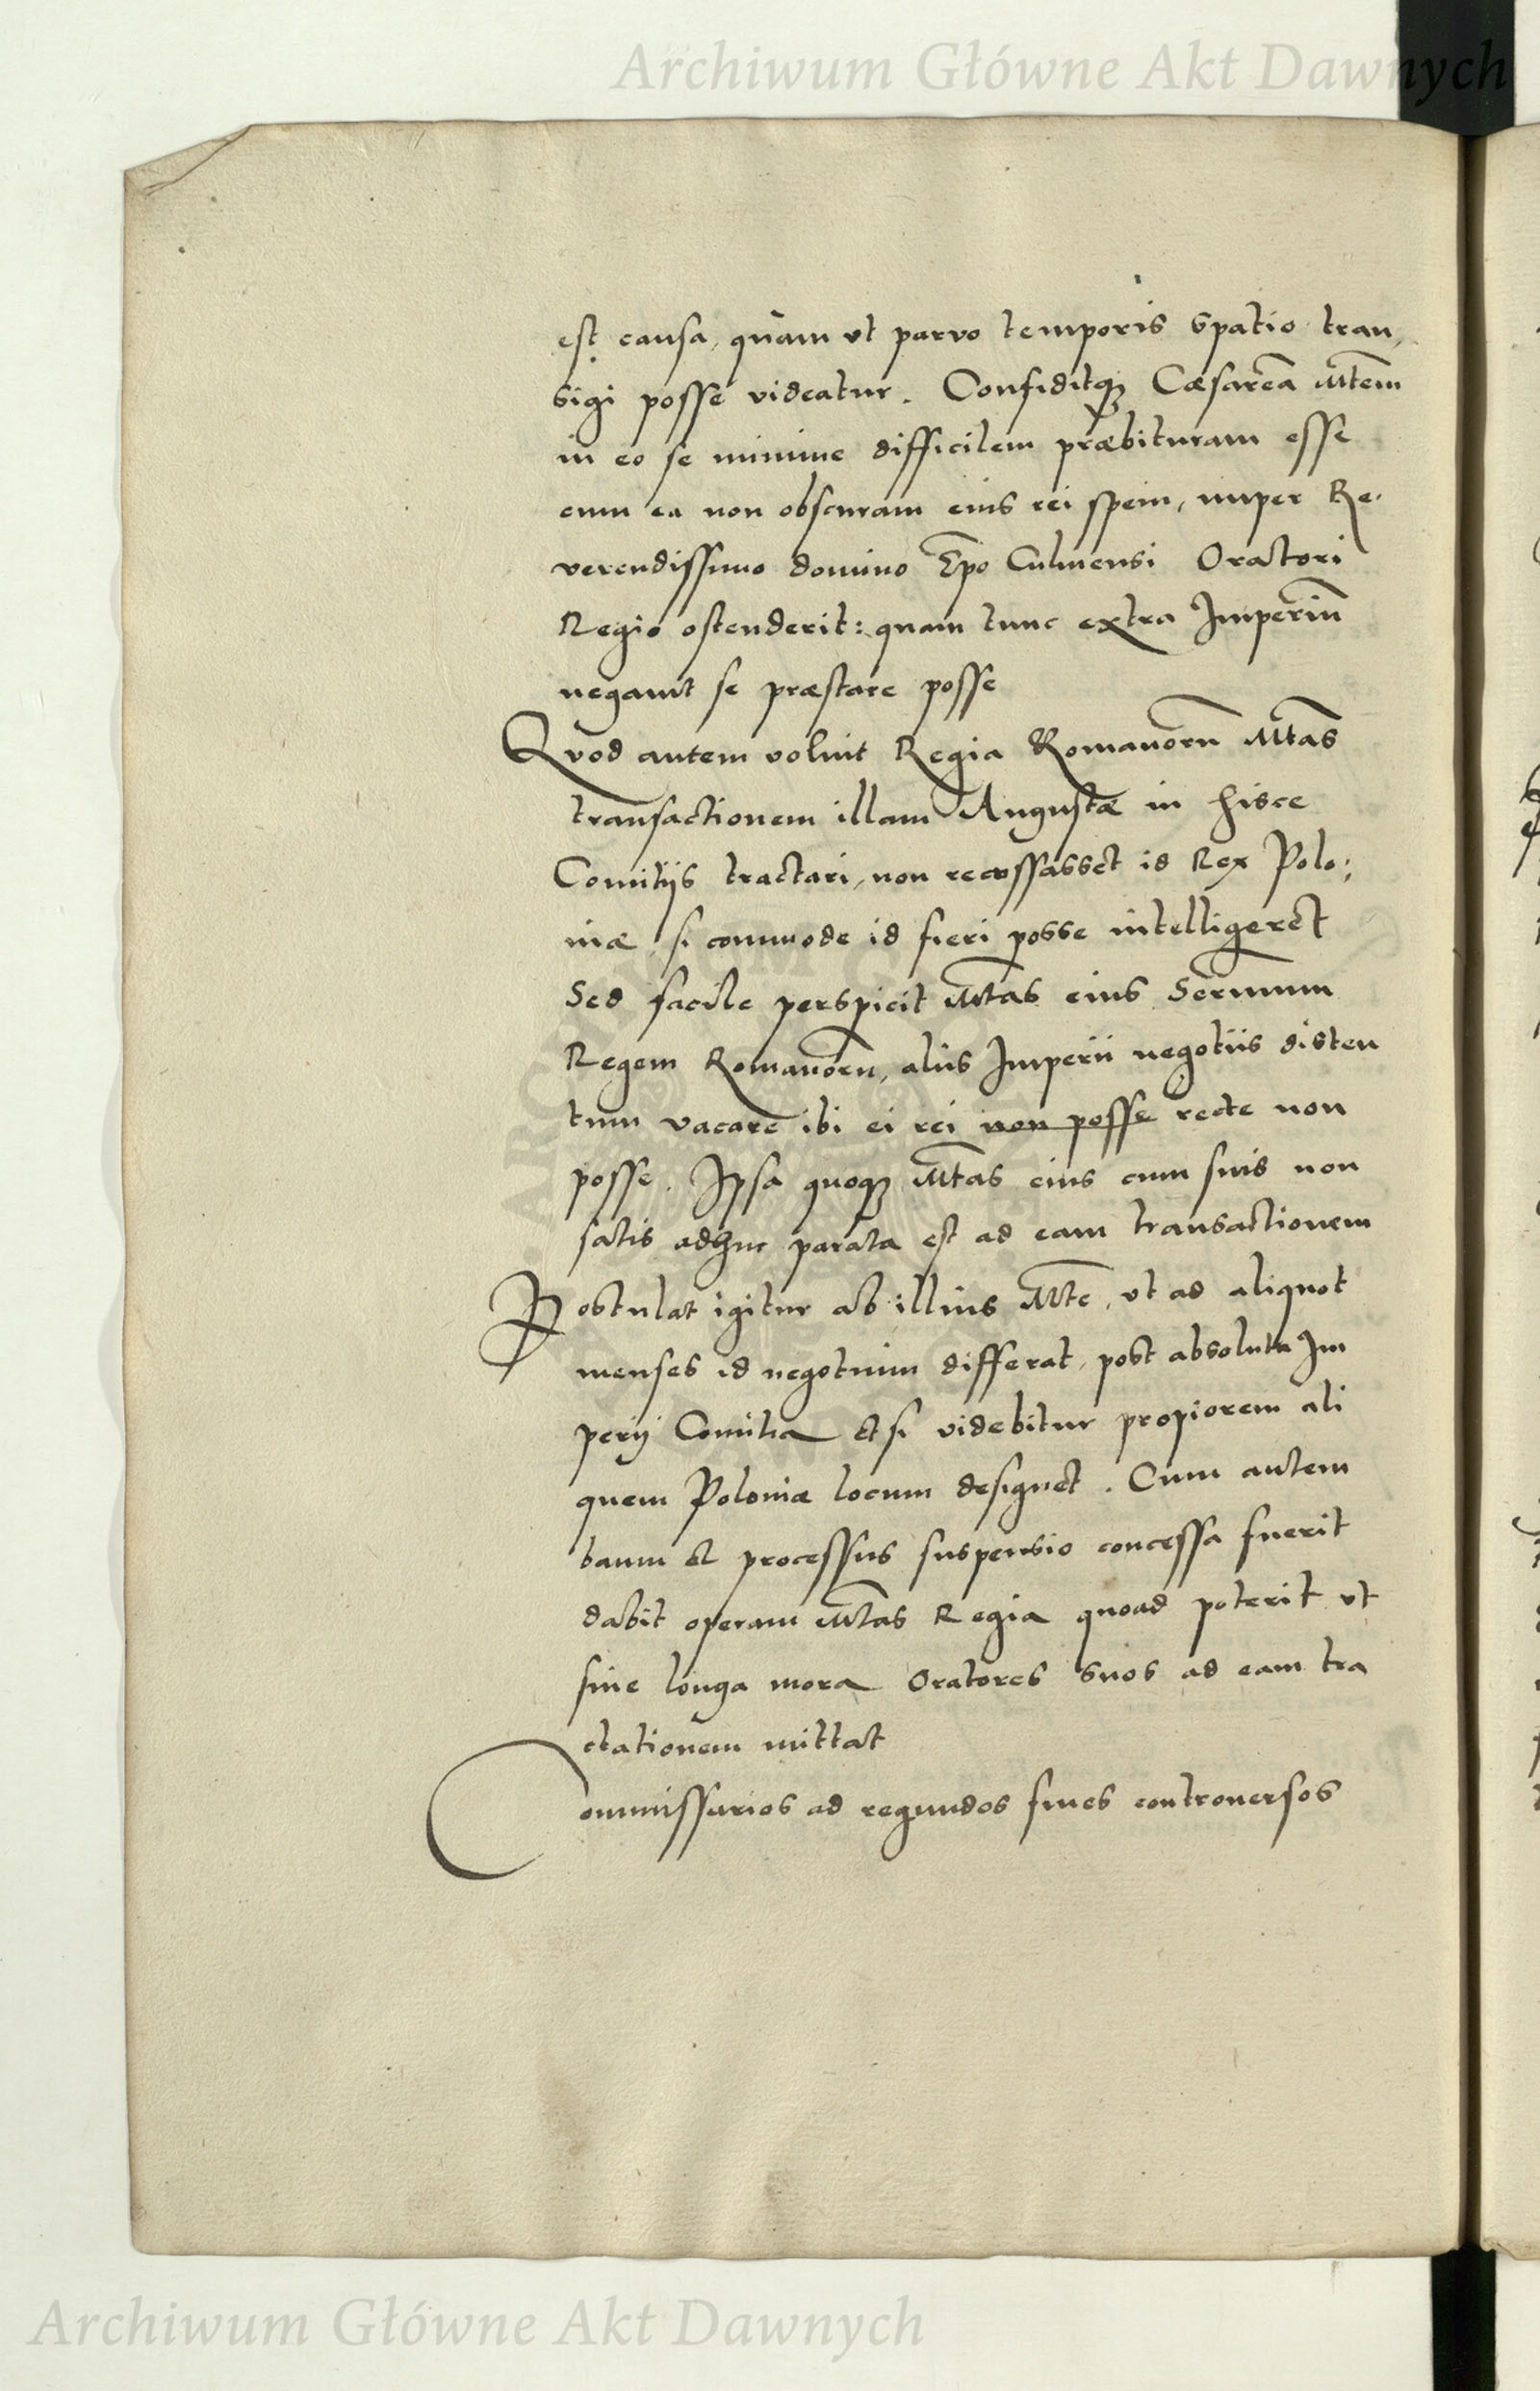 Archiwum Główne Akt Dawnych
est causa, quàm ut parvo temporis spatio tran,
sigi posse videatur. Confiditqꝫ Cæsareã Mtẽm
in eo se minime difficilem præbituram esse
cum ea non obscuram eius rei spem, nuper Re,
verendissimo domino Ep̃o Culmensi Oratori
Regio ostenderit: quam tunc extra Imperiũ
negavit se præstare posse
Quod autem voluit Regia Romanorũ Mtãs
transactionem illam Augustæ in hisce
Comitijs tractari, non recusasset id Rex Polo,
niæ, si commode id fieri posse intelligeret
Sed facile perspicit Mtãs eius Serm̃um
Regem Romanorũ, aliis Imperii negotiis disten
tum vacare ibi ei rei non posse recte non
posse. Ipsa quoqꝫ Mtãs eius cum suis non
satis adhuc parata est ad eam transactionem
Postulat igitur ab illius Mtẽ, ut ad aliquot
menses id negotium differat, post absoluta Im
perij Comitia et si videbitur propiorem ali
quem Poloniæ locum designet. Cum autem
banni et processus suspensio concessa fuerit
dabit operam Mtãs Regia quoad poterit ut
sine longa mora Oratores suos ad eam tra
ctationem mittat
Commissarios ad regundos fines controversos
Archiwum Główne Akt Dawnych